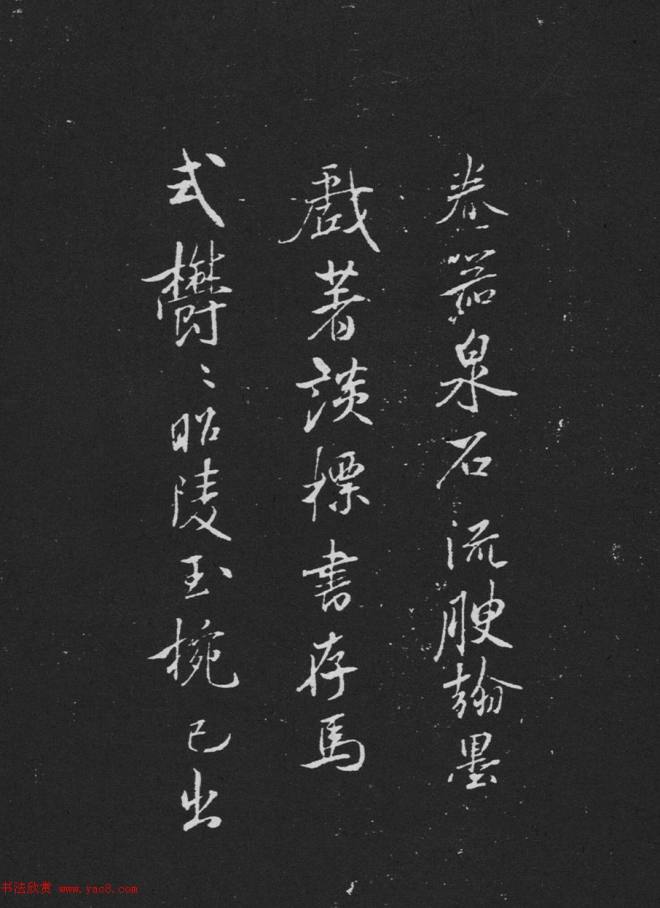 養噐泉石流腴翰墨
戲著談標書存馬
式鬱〻昭陵玉椀已出
书法欣赏 www.yac8.com